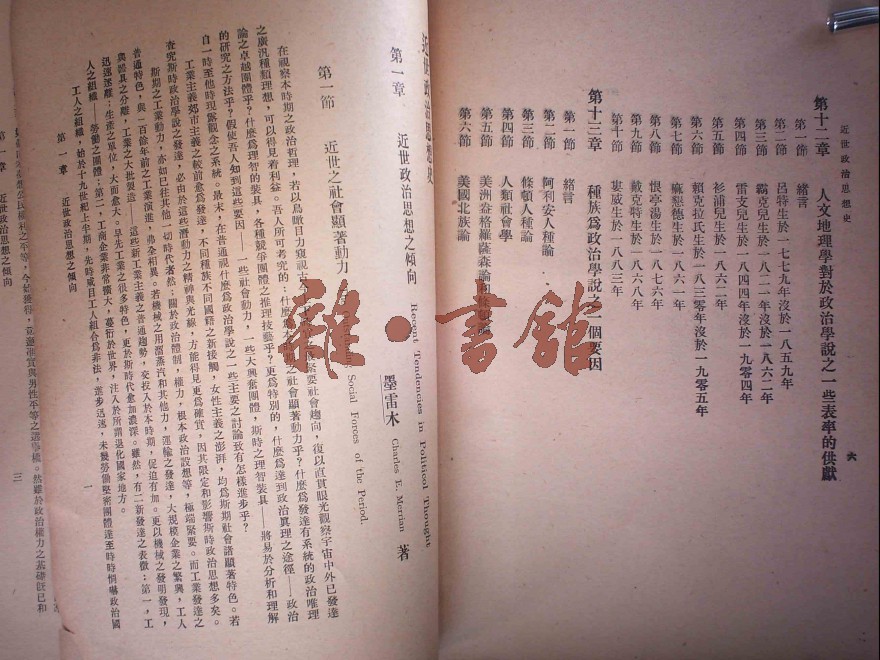 近世政治思想史
六
第十二章　人文地理學對於政治學說之一些表率的供獻
第一節　緒言
第二節　呂特生於一七七九年沒於一八五九年
第三節　霸克兒生於一八二一年沒於一八六二年
第四節　雷支兒生於一八四四年沒於一九〇四年
第五節　衫浦兒生於一八六二年
第六節　賴克拉氏生於一八三〇年沒於一九〇五年
第七節　雍懇德生於一八六一年
第八節　恨亭湯生於一八七六年
第九節　戴克特生於一八六八年
第十節　婁威生於一八八三年
第十三章　種族爲政治學說之一個要因
第一節　緒言
第二節　阿利安人種論
第三節　條頓人種論
第四節　人類社會學
第五節　美洲益格羅薩森論
第六節　美國北族論
雜·書舘
近世政治思想史
第一章　近世政治思想之傾向　Recent Tendencies in Political Thought
墨雷木　Charles E. Merrian　著
第一節　近世之社會顯著動力　Social Forces of the Period.
在觀察本時期之政治哲理，若以鳥瞰目力窺視
緊要社會趨向，復以直貫眼光觀察宇宙中外已發達
之廣汎種類理想，可以得見着利益。吾人所可考究的，什麼
社會顯著動力乎？什麼爲發達有系統的政治惟理
論之卓越團體乎？什麼爲理智的裝具，各種競爭團體之推理技藝乎？更爲特別的，什麼爲達到政治眞理之途徑——政治
的研究之方法乎？假使吾人知到這些要因——一些社會動力，一些大興奮團體，斯時之理智裝具——將易於分析和理解
自一時至他時現露觀念之系統。最末，在普通視什麼爲政治學說之一些主要之討論致有怎樣進步乎？
工業主義郊市主義之較前愈爲發達，不同種族不同國籍之新接觸，女性主義之澎湃，均爲斯期社會諸顯著特色。若
查究斯時政治學說之發達，必由於這些潛動力之精神與光線，方能得更爲確實，因其限定和影響斯時政治思想多矣。
斯期之工業動力，亦如已往其他一切時代者然；關於政治體制，權力，根本政治設想等，極端緊要。而工業發達之
普通特色，與一百餘年前之工業演進，弗全相異。若機械之用溜蒸汽和其他力，運輸之發達，大規模企業之繁興，工人
與器具之分離，工業之大批製造——這些新工業主義之普通趨勢，交投入於本時期，促迫有加。更以機械之發明發現，
迅速迷離；生產之單位，大而愈大。早先工業之很多特色，更於斯時代愈加濃深。雖然，有二新發達之表徵：第一，工
人之組織——勞働之團體。第二，工商企業非常擴大，蔓衍於世界，注入於所謂退化國家地方。
工人之組織，始於十九世紀上半期，先時咸目工人組合爲非法，進步迅速，未幾勞働堅密團體達至時時悄嚇政治國
第一章　近世政治思想之傾向
一
第一章　近世政治思想之傾向
三